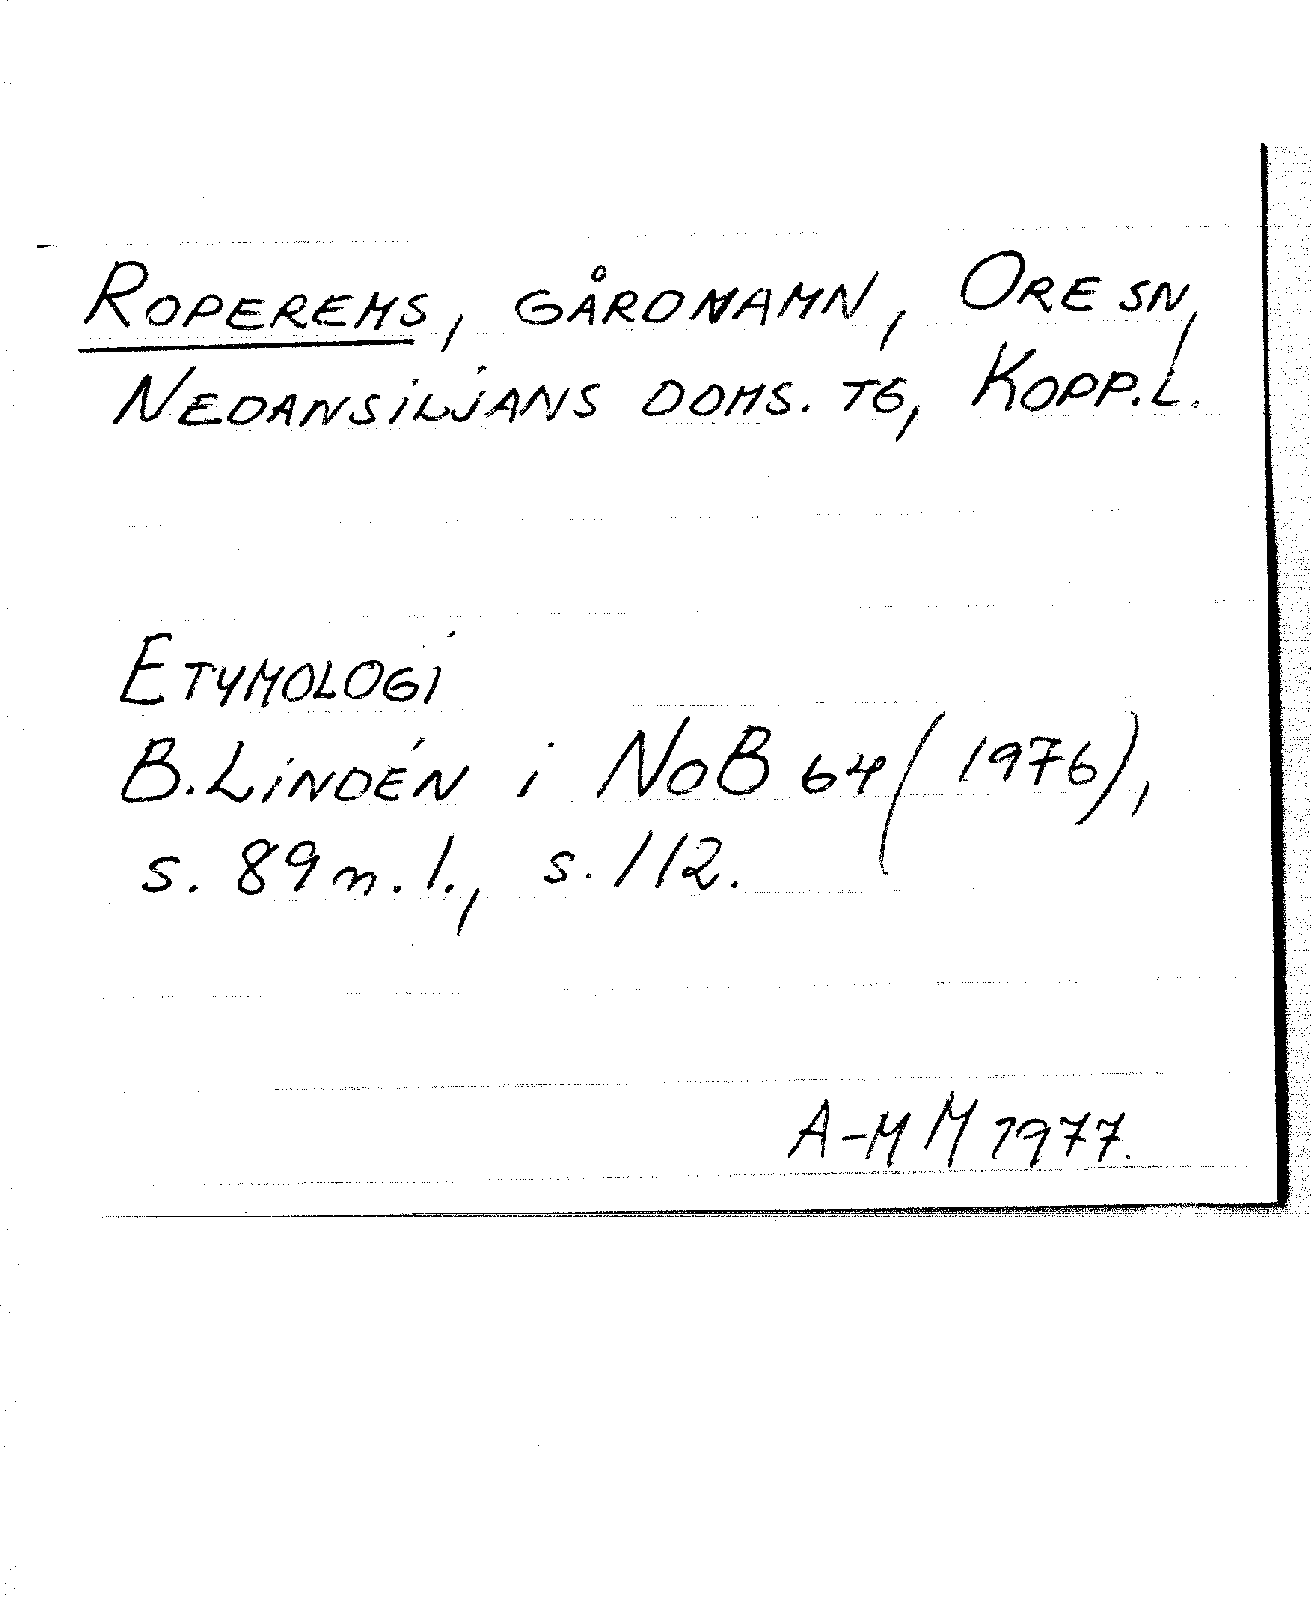 ROPEREMS, GÅRDNAMN, ORE SN,
NEDANSILJANS DOMS. TG, KOPP.L.
ETYMOLOGI
B. LINDÉN i NOB 64 (1976),
s. 89 n. 1., s. 112.
A-M M 1977.